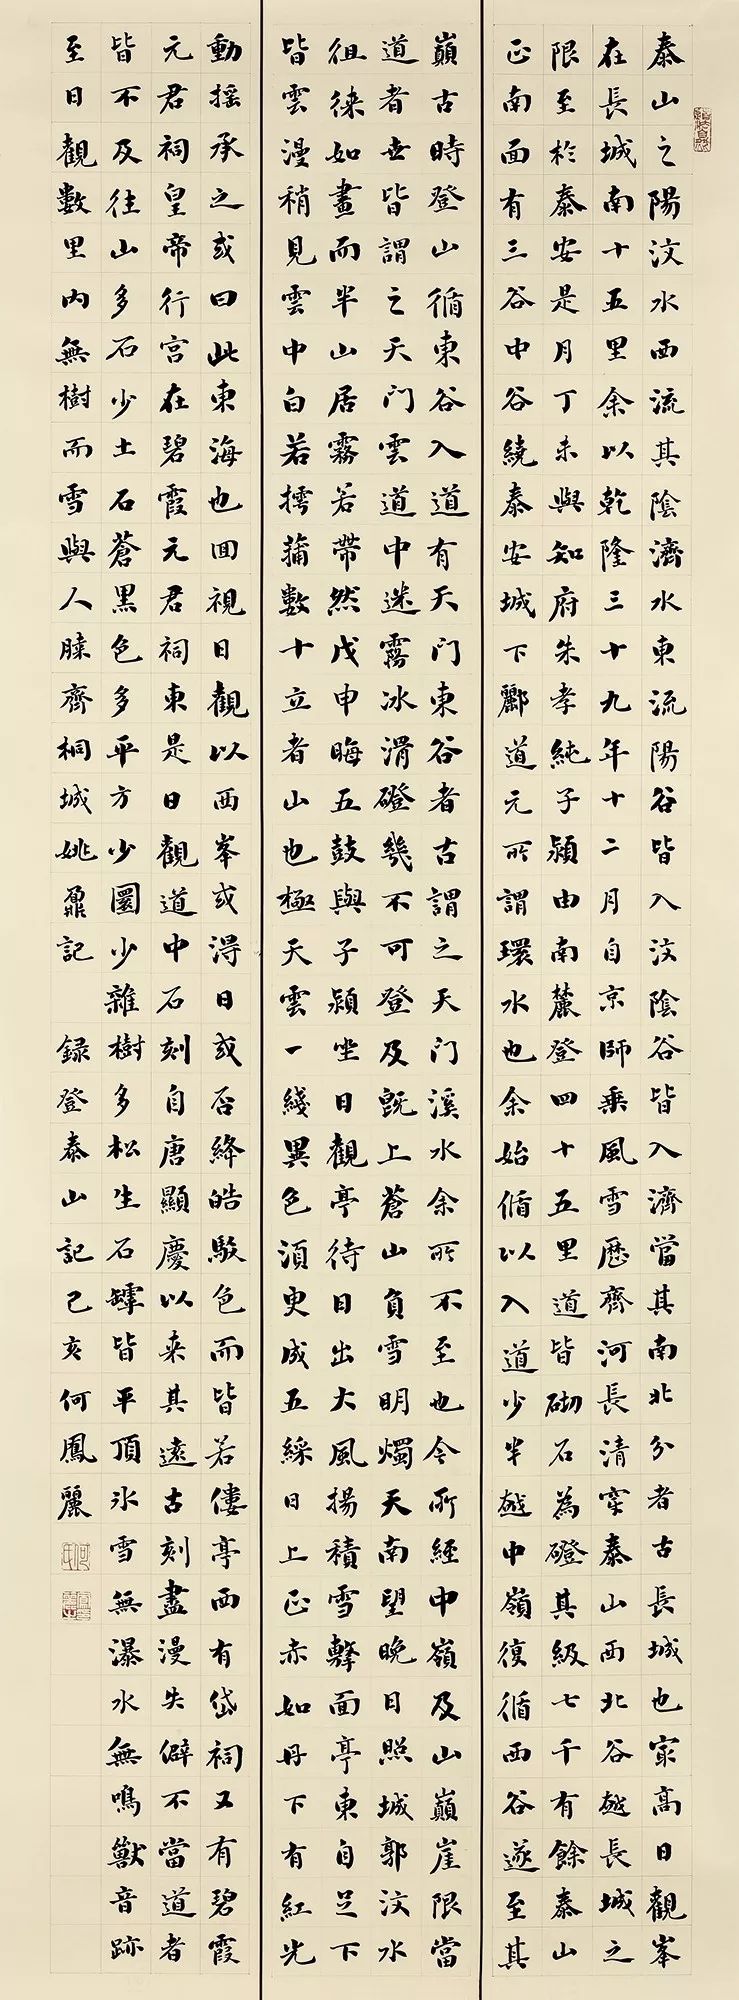 泰山之陽汶水西流其陰濟水東流陽谷皆入汶陰谷皆入濟當其南北分者古長城也冣高日觀峯
在長城南十五里余以乾隆三十九年十二月自京師乘風雪歷齊河長清穿泰山西北谷越長城之
限至於泰安是月丁未與知府朱孝純子潁由南麓登四十五里道皆砌石為磴其級七千有餘泰山
正南面有三谷中谷繞泰安城下酈道元所謂環水也余始循以入道少半越中嶺復循西谷遂至其
巔古時登山循東谷入道有天門東谷者古謂之天門溪水余所不至也今所經中嶺及山巔崖限當
道者世皆謂之天門雲道中迷霧冰滑磴幾不可登及既上蒼山負雪明燭天南望晚日照城郭汶水
徂徠如畫而半山居霧若帶然戊申晦五鼓與子潁坐日觀亭待日出大風揚積雪擊面亭東自足下
皆雲漫稍見雲中白若摴蒲數十立者山也極天雲一綫異色須臾成五綵日上正赤如丹下有紅光
動搖承之或曰此東海也回視日觀以西峯或得日或否絳皓駁色而皆若僂亭西有岱祠又有碧霞
元君祠皇帝行宮在碧霞元君祠東是日觀道中石刻自唐顯慶以来其遠古刻盡漫失僻不當道者
皆不及往山多石少土石蒼黑色多平方少圜少雜樹多松生石罅皆平頂冰雪無瀑水無鳴獸音跡
至日觀數里內無樹而雪與人膝齊桐城姚鼐記 録登泰山記己亥何鳳麗